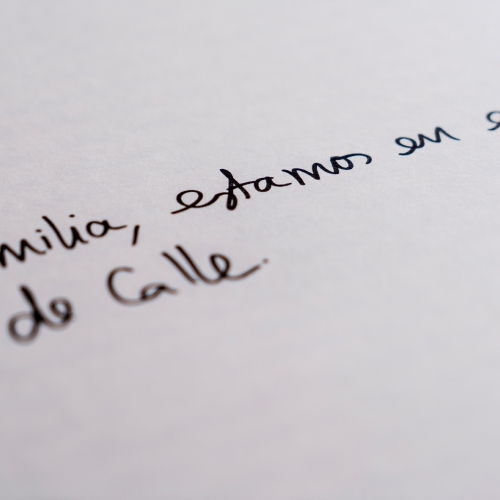 milia, estamos en e
de Calle.